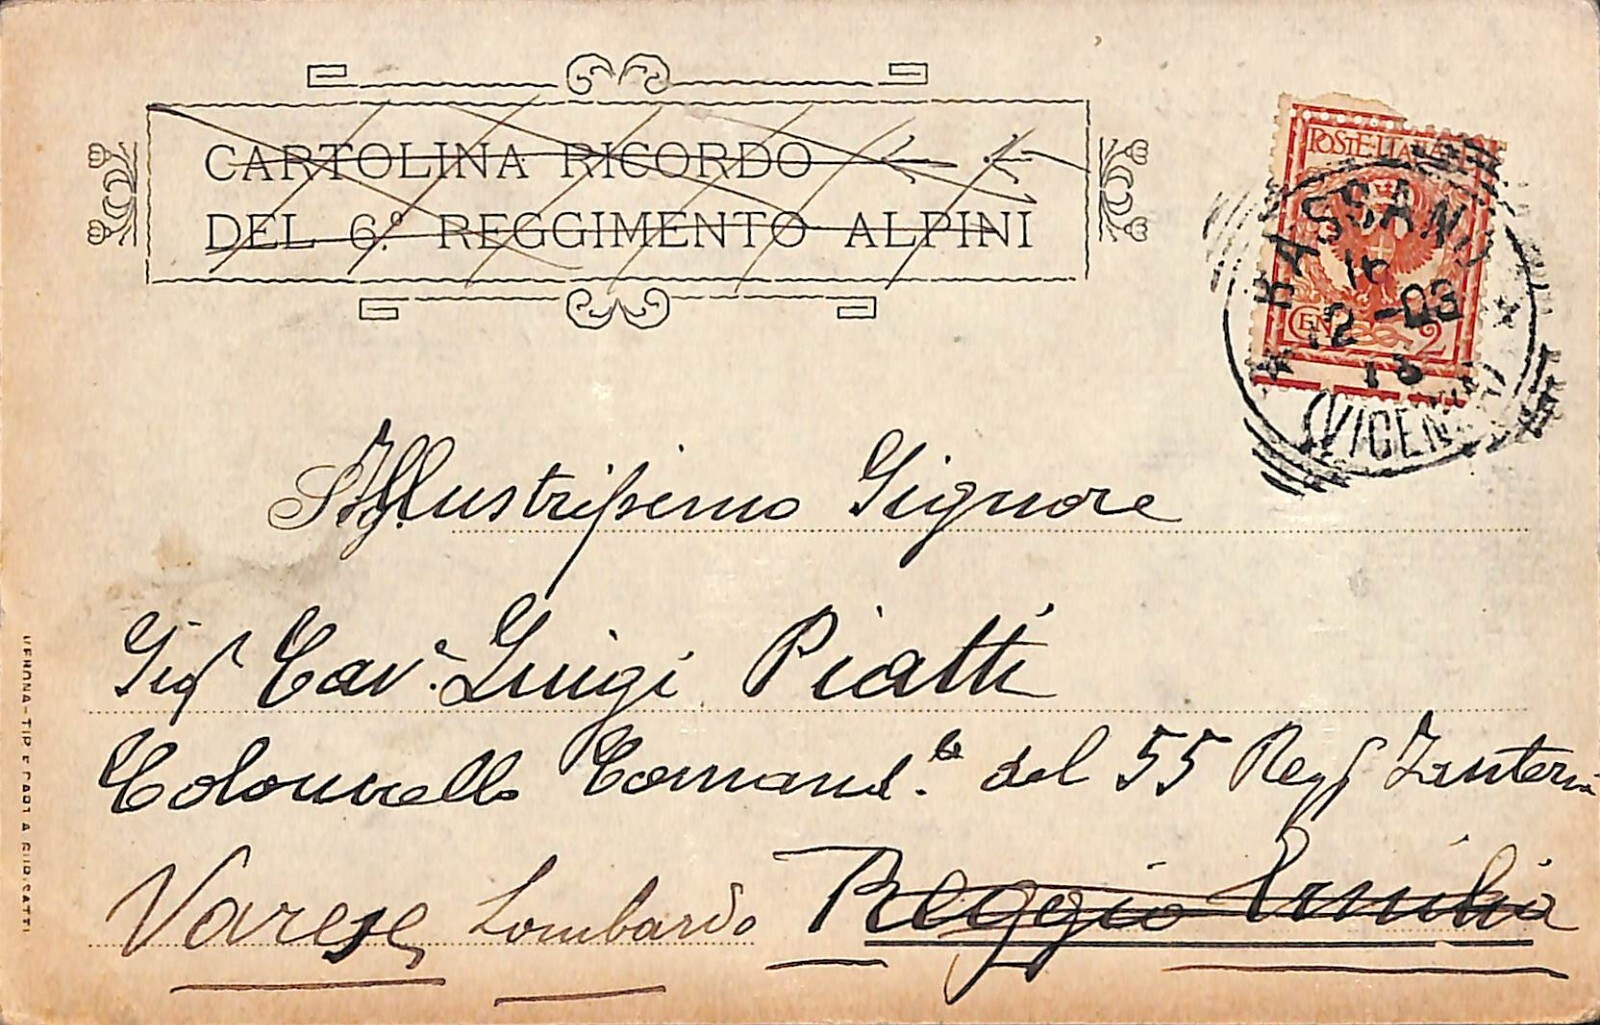 CARTOLINA RICORDO
DEL 6.º REGGIMENTO ALPINI
POSTE ITALIANE
CEN 2
BASSANO
16
12-03
13
(VICENZA)
Illustrissimo Signore
Sigr Cav.e Luigi Piatti
Colonnello Comand.te del 55 Regg Fanteria
Varese Lombardo Reggio Emilia
VERONA - TIP E CART A GURISATTI